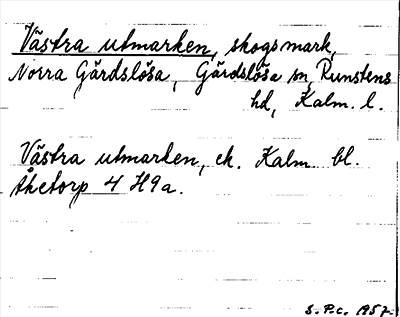 Västra utmarken, skogsmark,
Norra Gärdslösa, Gärdslösa sn, Runstens
hd, Kalm. l.
Västra utmarken, ek. Kalm. bl.
Åketorp 4 H9a.
S. P.c. 1957.